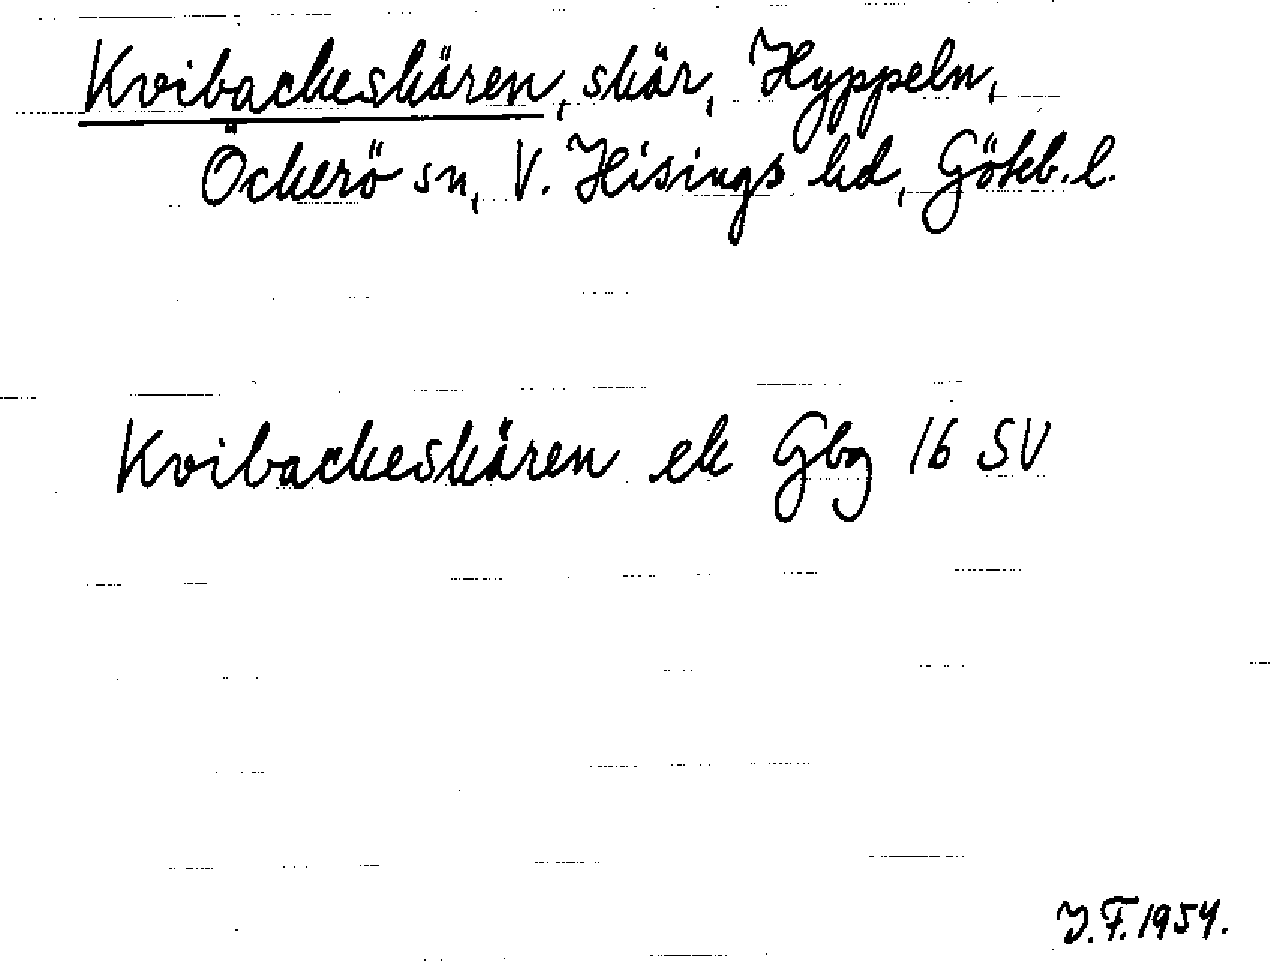 Kvibackeskären, skär, Hyppeln,
Öckerö sn, V. Hisings hd, Göteb. l.
Kvibackeskären ek Gbg 16 SV
J.F. 1954.